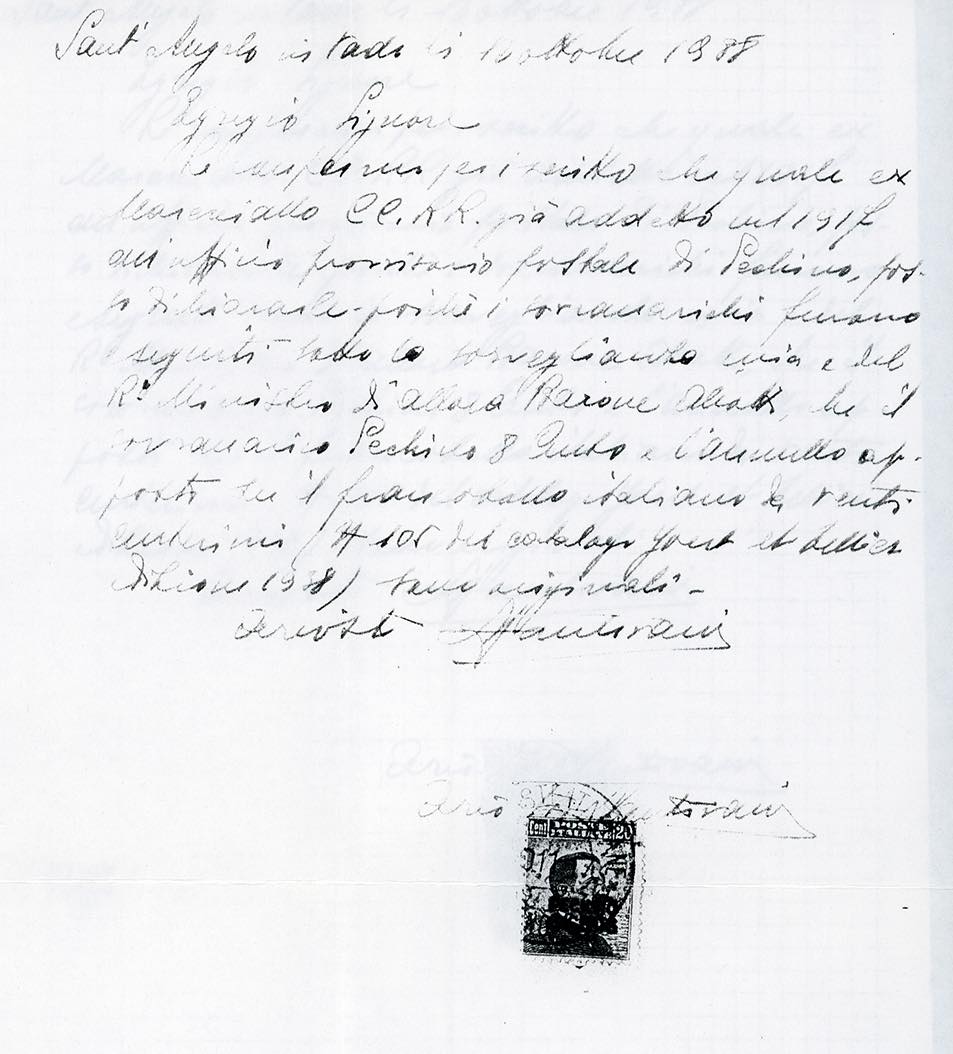 Sant'Angelo in Vado li 16 ottobre 1988
Egregio Signore
Le confermo per iscritto che quale ex
Maresciallo CC.RR. già addetto nel 1917
all'ufficio provvisorio postale di Pechino, pos-
so dichiararle poiché i sovraccarichi furono
eseguiti sotto la sorveglianza mia e del
R° Ministro di allora Barone Aliotti, che il
sovraccarico Pechino 8 e l'annullo ap-
posti su il francobollo italiano da venti
centesimi (# 105 del catalogo Yvert et Tellier
edizione 1938) sono originali -
Ariosto Mantovani
Ario Mantovani
20